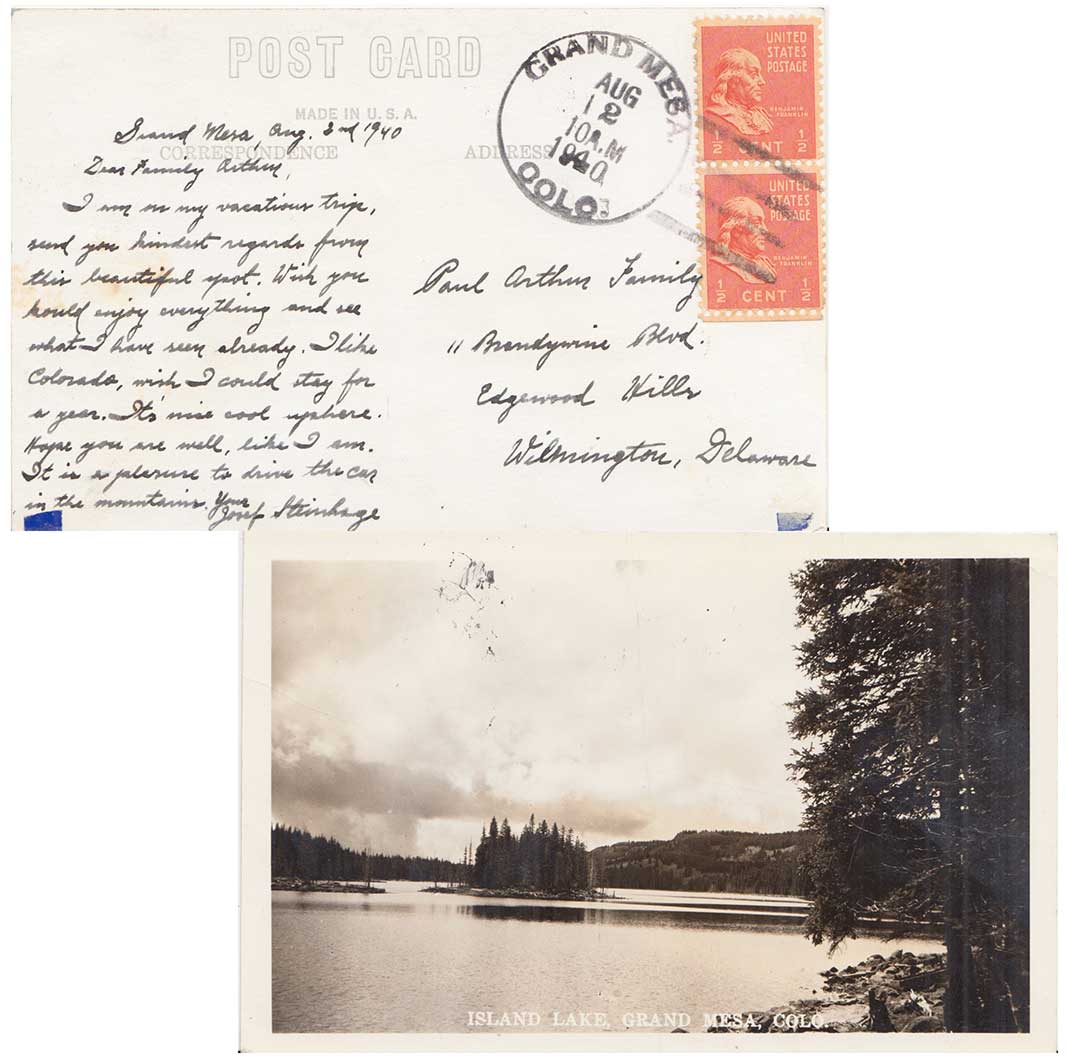 POST CARD
MADE IN U.S.A.
CORRESPONDENCE
ADDRESS
GRAND MESA.
AUG
12
10 A.M
1940
COLO.
UNITED
STATES
POSTAGE
BENJAMIN
FRANKLIN
½ CENT ½
UNITED
STATES
POSTAGE
BENJAMIN
FRANKLIN
½ CENT ½
Grand Mesa, Aug. 2nd 1940
Dear Family Arthur,
I am on my vacations trip,
send you kindest regards from
this beautiful spot. Wish you
kould enjoy everything and see
what I have seen already. I like
Colorado, wish I could stay for
a year. It's nise cool uphere.
Hope you are well, like I am.
It is a plesure to drive the car
in the mountains. Your
Josef Steinhage
Paul Arthur Family
11 Brandywine Blvd.
Edgewood Hills
Wilmington, Delaware
ISLAND LAKE, GRAND MESA, COLO.